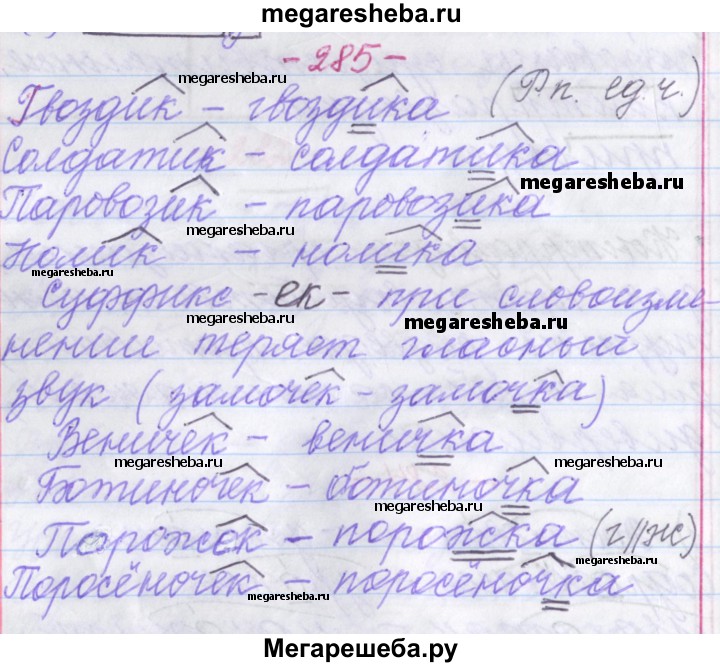 megaresheba.ru
- 285 -
megaresheba.ru
Гвоздик - гвоздика (Р.п. ед.ч.)
Солдатик - солдатика
megaresheba.ru
Паровозик - паровозика
Нолик - нолика
megaresheba.ru
Суффикс -ек- при словоизме-
megaresheba.ru
megaresheba.ru
нении теряет гласный
звук (замочек - замочка)
Веничек - веничка
megaresheba.ru
megaresheba.ru
Ботиночек - ботиночка
megaresheba.ru
Порожек - порожка (г//ж)
megaresheba.ru
Поросёночек - поросёночка
megaresheba.ru
Мегарешеба.ру